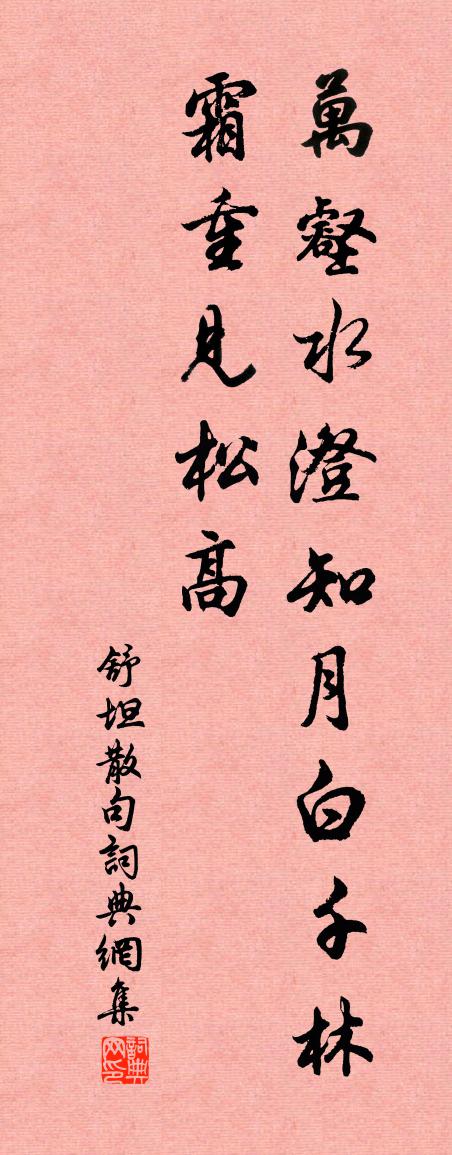 萬壑水澄知月白千林
霜重見松高
舒坦散句詞典網集
詞典网印